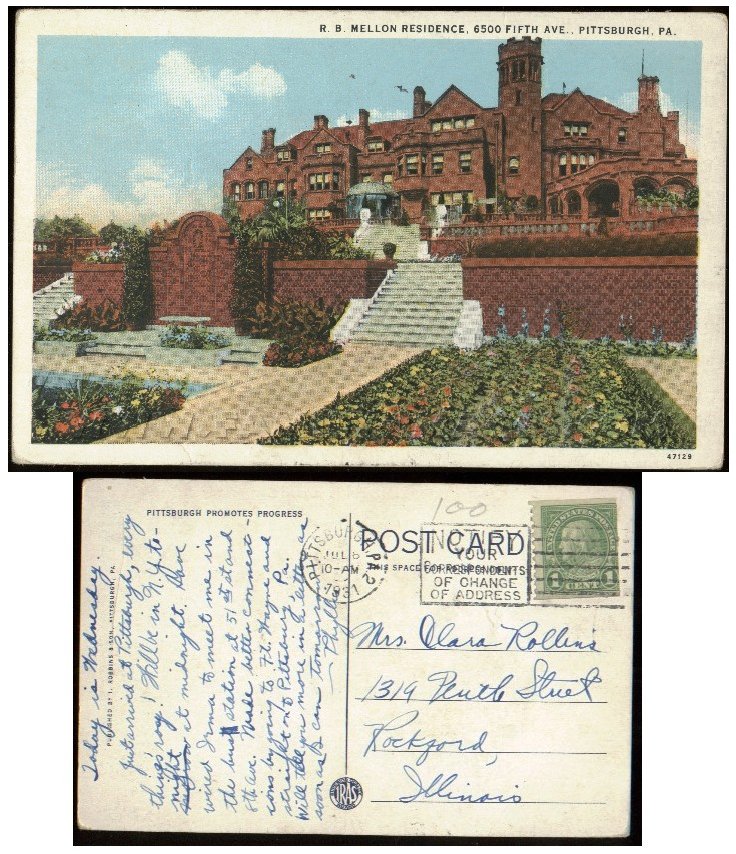 R. B. MELLON RESIDENCE, 6500 FIFTH AVE., PITTSBURGH, PA.
47129
PITTSBURGH PROMOTES PROGRESS
PUBLISHED BY I. ROBBINS & SON, PITTSBURGH, PA.
Today is Wednesday.
Just arrived at Pittsburgh, every
thing's roy! Will be in N.Y. to-
night at midnight. Have
wired Irma to meet me in
the bus station at 51st st and
8th ave. Made better connect-
ions by going to Ft. Wayne and
straight on to Pittsburg Pa.
Will tell you more in a letter as
soon as I can tomorrow
- Phyllis
PITTSBURGH, PA. 2
JUL 8
10-AM
1931
100
NOTIFY
YOUR
CORRESPONDENTS
OF CHANGE
OF ADDRESS
POST CARD
THIS SPACE FOR
UNITED STATES POSTAGE
1 CENT 1
Mrs. Clara Rollins
1319 Street
Rockford,
Illinois